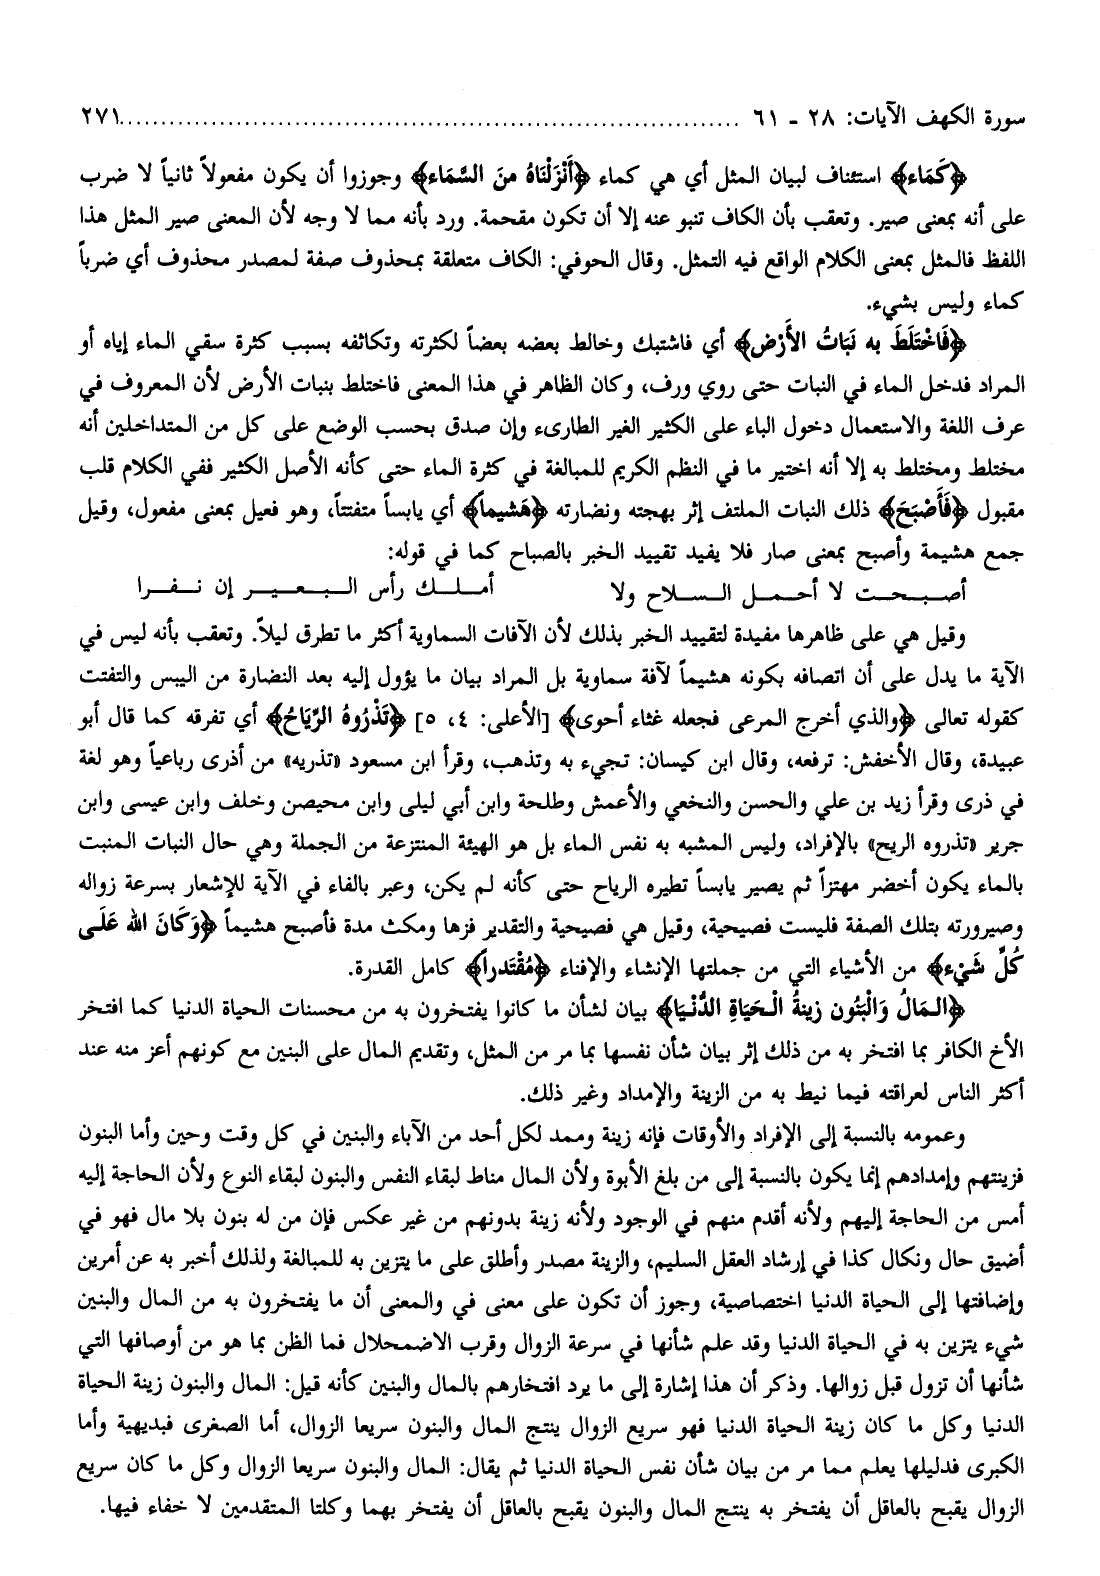 سورة الكهف الآيات: ٢٨ ـ ٦١ ........................................................................ ٢٧١
﴿كَمَاء﴾ استئناف لبيان المثل أي هي كماء ﴿أَنْزَلْنَاهُ منَ السَّمَاء﴾ وجوزوا أن يكون مفعولاً ثانياً لا ضرب
على أنه بمعنى صير. وتعقب بأن الكاف تنبو عنه إلا أن تكون مقحمة. ورد بأنه مما لا وجه لأن المعنى صير المثل هذا
اللفظ فالمثل بمعنى الكلام الواقع فيه التمثل. وقال الحوفي: الكاف متعلقة بمحذوف صفة لمصدر محذوف أي ضرباً
كماء وليس بشيء.
﴿فَاخْتَلَطَ به نَبَاتُ الأَرْض﴾ أي فاشتبك وخالط بعضه بعضاً لكثرته وتكاثفه بسبب كثرة سقي الماء إياه أو
المراد فدخل الماء في النبات حتى روي ورف، وكان الظاهر في هذا المعنى فاختلط بنبات الأرض لأن المعروف في
عرف اللغة والاستعمال دخول الباء على الكثير الغير الطارىء وإن صدق بحسب الوضع على كل من المتداخلين أنه
مختلط ومختلط به إلا أنه اختير ما في النظم الكريم للمبالغة في كثرة الماء حتى كأنه الأصل الكثير ففي الكلام قلب
مقبول ﴿فَأَصْبَحَ﴾ ذلك النبات الملتف إثر بهجته ونضارته ﴿هَشيماً﴾ أي يابساً متفتتاً، وهو فعيل بمعنى مفعول، وقيل
جمع هشيمة وأصبح بمعنى صار فلا يفيد تقييد الخبر بالصباح كما في قوله:
أصبحت لا أحمل السلاح ولا أملك رأس البعير إن نفرا
وقيل هي على ظاهرها مفيدة لتقييد الخبر بذلك لأن الآفات السماوية أكثر ما تطرق ليلاً. وتعقب بأنه ليس في
الآية ما يدل على أن اتصافه بكونه هشيماً لآفة سماوية بل المراد بيان ما يؤول إليه بعد النضارة من اليبس والتفتت
كقوله تعالى ﴿والذي أخرج المرعى فجعله غثاء أحوى﴾ [الأعلى: ٤، ٥] ﴿تَذْرُوهُ الرِّيَاحُ﴾ أي تفرقه كما قال أبو
عبيدة، وقال الأخفش: ترفعه، وقال ابن كيسان: تجيء به وتذهب، وقرأ ابن مسعود «تذريه» من أذرى رباعياً وهو لغة
في ذرى وقرأ زيد بن علي والحسن والنخعي والأعمش وطلحة وابن أبي ليلى وابن محيصن وخلف وابن عيسى وابن
جرير «تذروه الريح» بالإفراد، وليس المشبه به نفس الماء بل هو الهيئة المنتزعة من الجملة وهي حال النبات المنبت
بالماء يكون أخضر مهتزاً ثم يصير يابساً تطيره الرياح حتى كأنه لم يكن، وعبر بالفاء في الآية للإشعار بسرعة زواله
وصيرورته بتلك الصفة فليست فصيحية، وقيل هي فصيحية والتقدير فزها ومكث مدة فأصبح هشيماً ﴿وَكَانَ الله عَلَى
كُلِّ شَيْء﴾ من الأشياء التي من جملتها الإنشاء والإفناء ﴿مُقْتَدراً﴾ كامل القدرة.
﴿المَالُ وَالْبَنُون زينةُ الْحَيَاةِ الدُّنْيَا﴾ بيان لشأن ما كانوا يفتخرون به من محسنات الحياة الدنيا كما افتخر
الأخ الكافر بما افتخر به من ذلك إثر بيان شأن نفسها بما مر من المثل، وتقديم المال على البنين مع كونهم أعز منه عند
أكثر الناس لعراقته فيما نيط به من الزينة والإمداد وغير ذلك.
وعمومه بالنسبة إلى الإفراد والأوقات فإنه زينة وممد لكل أحد من الآباء والبنين في كل وقت وحين وأما البنون
فزينتهم وإمدادهم إنما يكون بالنسبة إلى من بلغ الأبوة ولأن المال مناط لبقاء النفس والبنون لبقاء النوع ولأن الحاجة إليه
أمس من الحاجة إليهم ولأنه أقدم منهم في الوجود ولأنه زينة بدونهم من غير عكس فإن من له بنون بلا مال فهو في
أضيق حال ونكال كذا في إرشاد العقل السليم، والزينة مصدر وأطلق على ما يتزين به للمبالغة ولذلك أخبر به عن أمرين
وإضافتها إلى الحياة الدنيا اختصاصية، وجوز أن تكون على معنى في والمعنى أن ما يفتخرون به من المال والبنين
شيء يتزين به في الحياة الدنيا وقد علم شأنها في سرعة الزوال وقرب الاضمحلال فما الظن بما هو من أوصافها التي
شأنها أن تزول قبل زوالها. وذكر أن هذا إشارة إلى ما يرد افتخارهم بالمال والبنين كأنه قيل: المال والبنون زينة الحياة
الدنيا وكل ما كان زينة الحياة الدنيا فهو سريع الزوال ينتج المال والبنون سريعا الزوال، أما الصغرى فبديهية وأما
الكبرى فدليلها يعلم مما مر من بيان شأن نفس الحياة الدنيا ثم يقال: المال والبنون سريعا الزوال وكل ما كان سريع
الزوال يقبح بالعاقل أن يفتخر به ينتج المال والبنون يقبح بالعاقل أن يفتخر بهما وكلتا المتقدمين لا خفاء فيها.